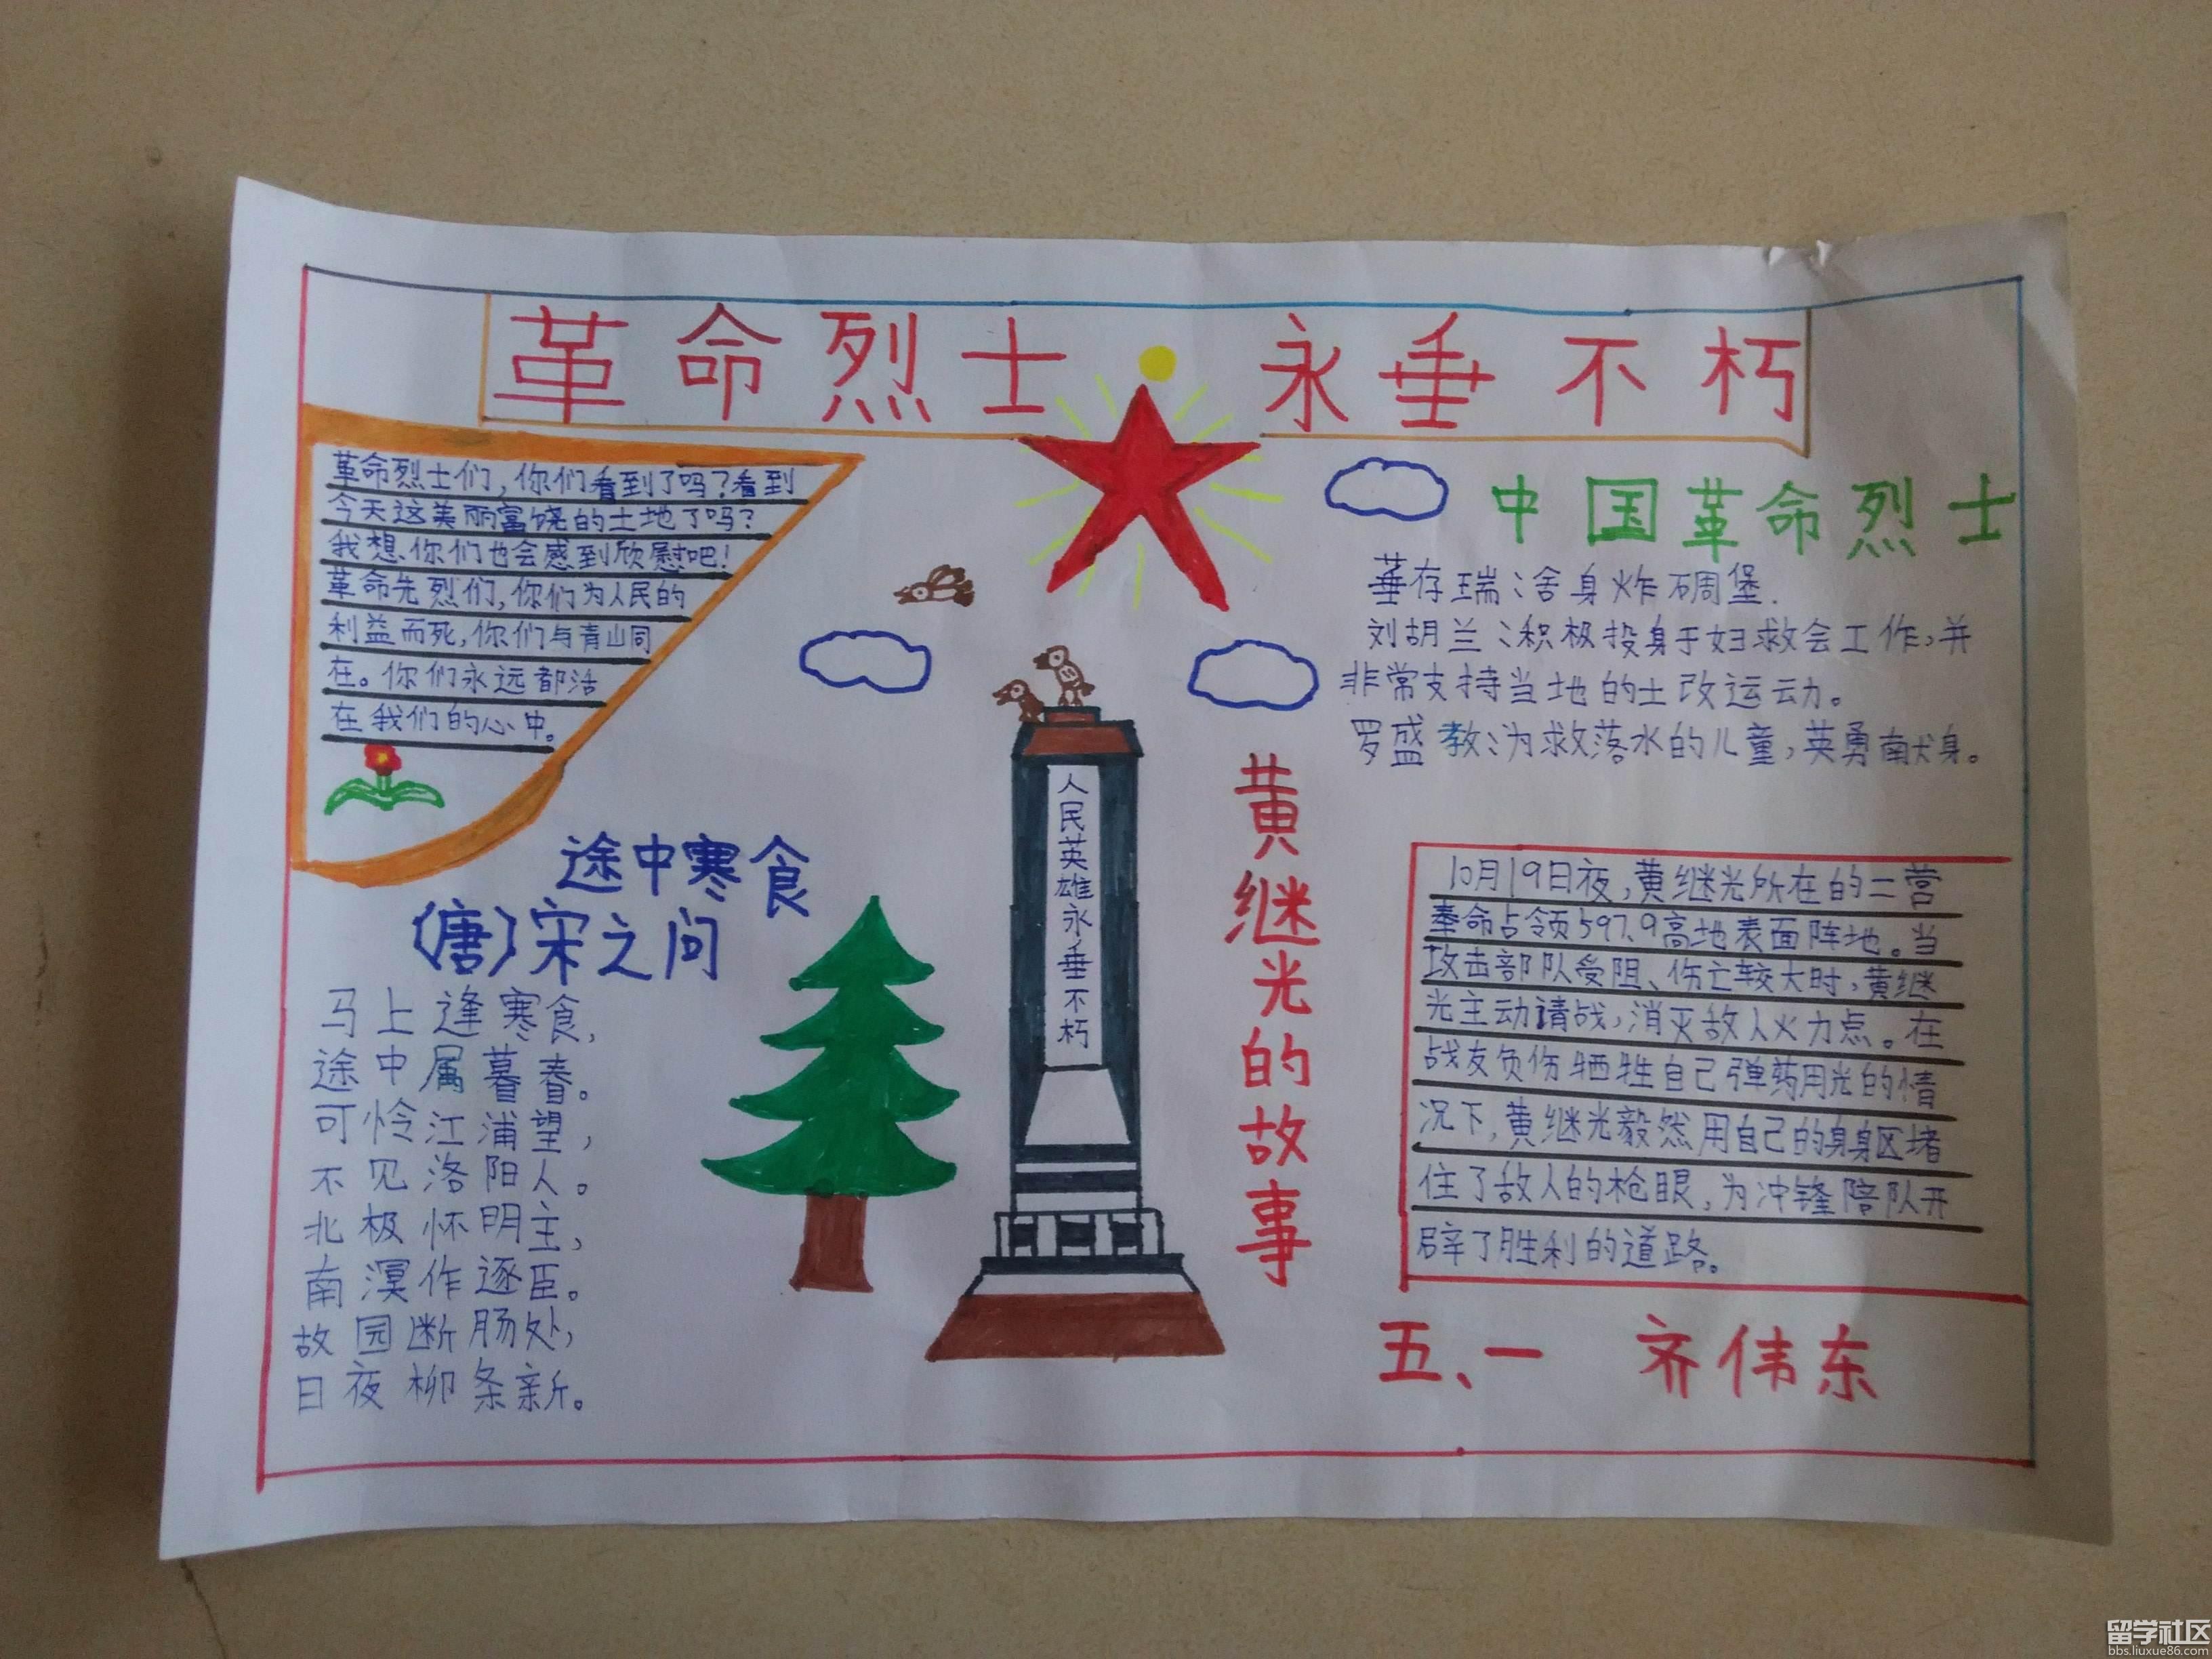 革命烈士 永垂不朽
革命烈士们,你们看到了吗?看到
今天这美丽富饶的土地了吗?
我想,你们也会感到欣慰吧!
革命先烈们,你们为人民的
利益而死,你们与青山同
在。你们永远都活
在我们的心中。
途中寒食
(唐)宋之问
马上逢寒食,
途中属暮春。
可怜江浦望,
不见洛阳人。
北极怀明主,
南溟作逐臣。
故园断肠处,
日夜柳条新。
人民英雄永垂不朽
中国革命烈士
存瑞:舍身炸碉堡.
刘胡兰:积极投身于妇救会工作,并
非常支持当地的土改运动。
罗盛教:为救落水的儿童,英勇献身。
黄继光的故事
10月19日夜,黄继光所在的二营
奉命占领597.9高地表面阵地。当
攻击部队受阻、伤亡较大时,黄继
光主动请战,消灭敌人火力点。在
战友负伤牺牲自己弹药用光的情
况下,黄继光毅然用自己的身躯堵
住了敌人的枪眼,为冲锋陪队开
辟了胜利的道路。
五、一 齐伟东
留学社区
bbs.liuxue86.com